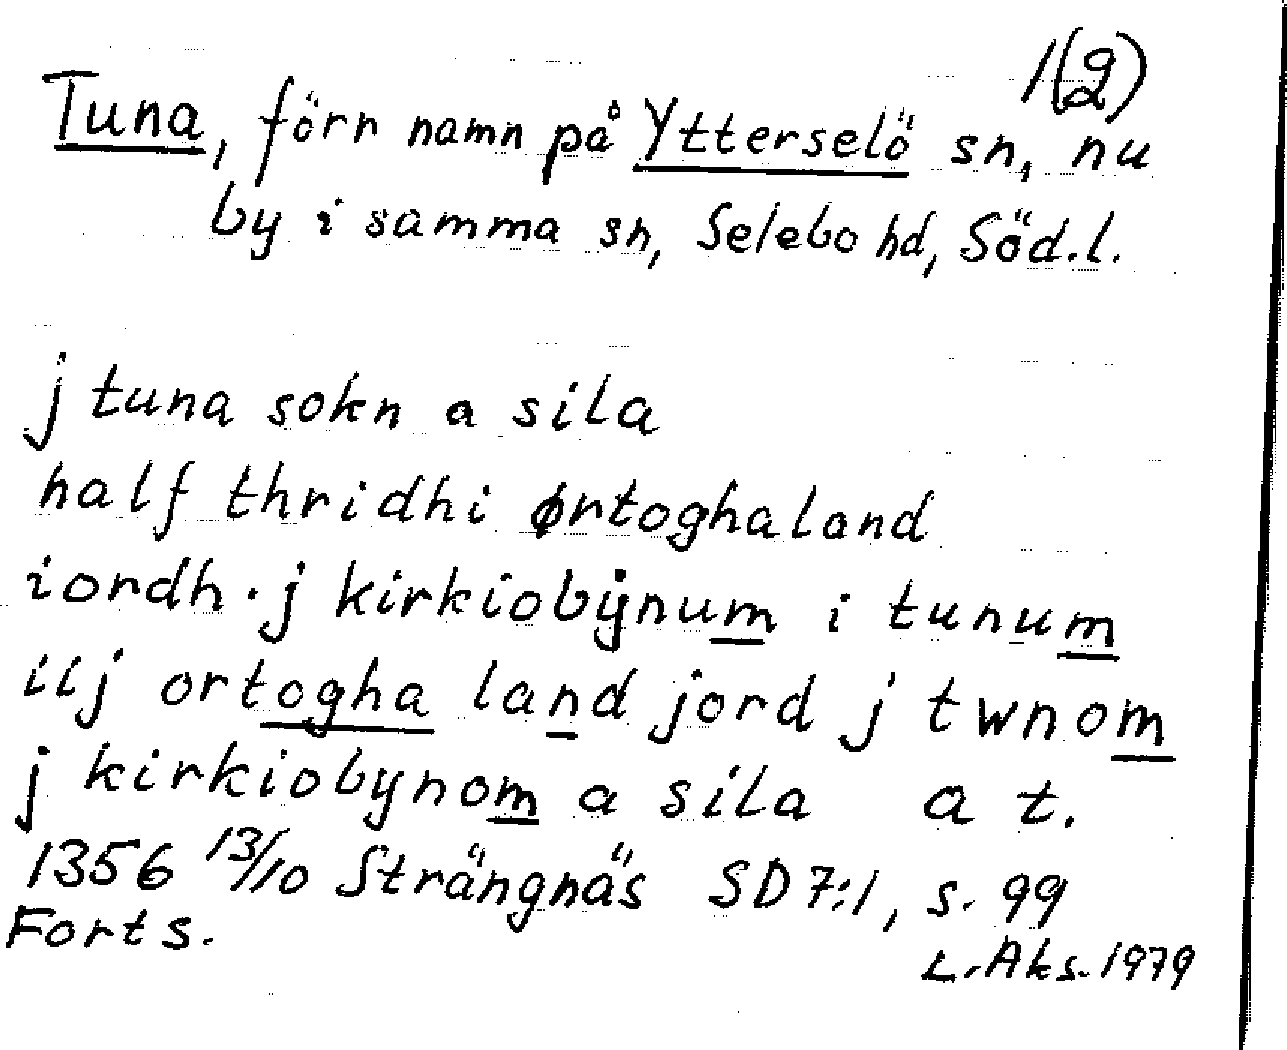 1(2)
Tuna, förr namn på Ytterselö sn, nu
by i samma sn, Selebo hd, Söd.l.
j tuna sokn a sila
half thridhi ørtoghaland
iordh. j kirkiobÿnum i tunum
iij ortogha land jord j twnom
j kirkiobynom a sila a t.
1356 13/10 Strängnäs SD 7:1, s. 99
Forts.
L. Aks. 1979